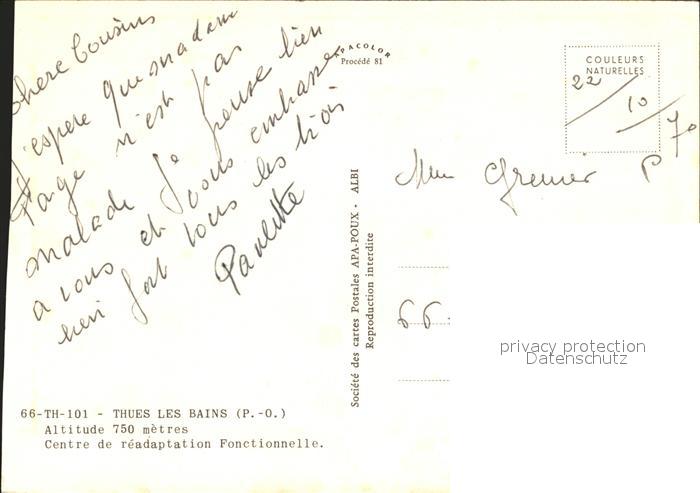 chere Cousins
J'espere que madame
Page n'est pas
malade Je pense bien
a vous et vous embrasse
bien fort tous les trois
Paulette
APACOLOR
Procédé 81
COULEURS
NATURELLES
22/10/70
Mme Grenier P
66.
Société des cartes Postales APA-POUX - ALBI
Reproduction interdite
privacy protection
Datenschutz
66-TH-101 - THUES LES BAINS (P.-O.)
Altitude 750 mètres
Centre de réadaptation Fonctionnelle.